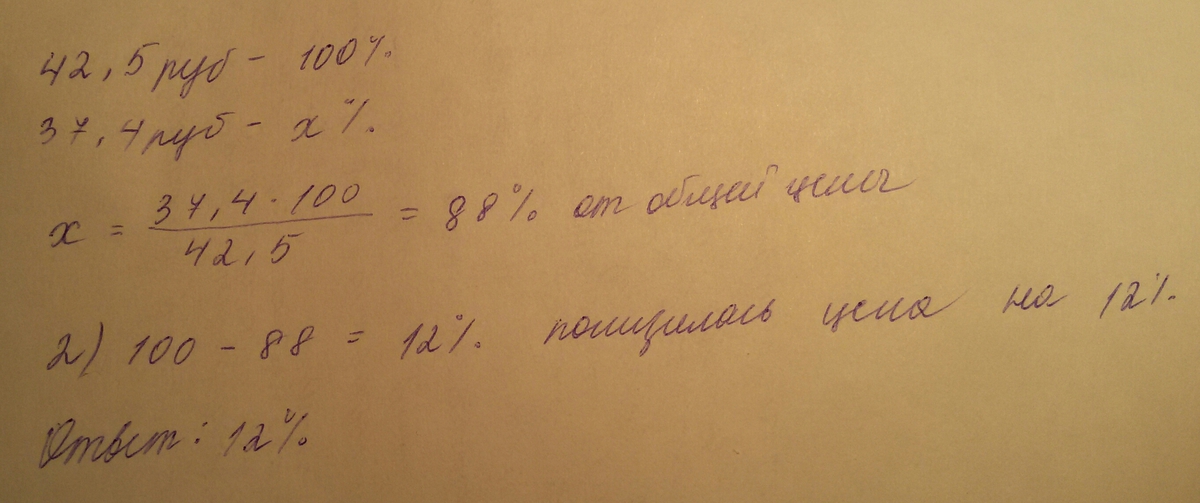 42,5 руб - 100%.
37,4 руб - x%.
x = 37,4 · 100 / 42,5 = 88% от общей цены
2) 100 - 88 = 12%. понизилась цена на 12%.
Ответ: 12%.